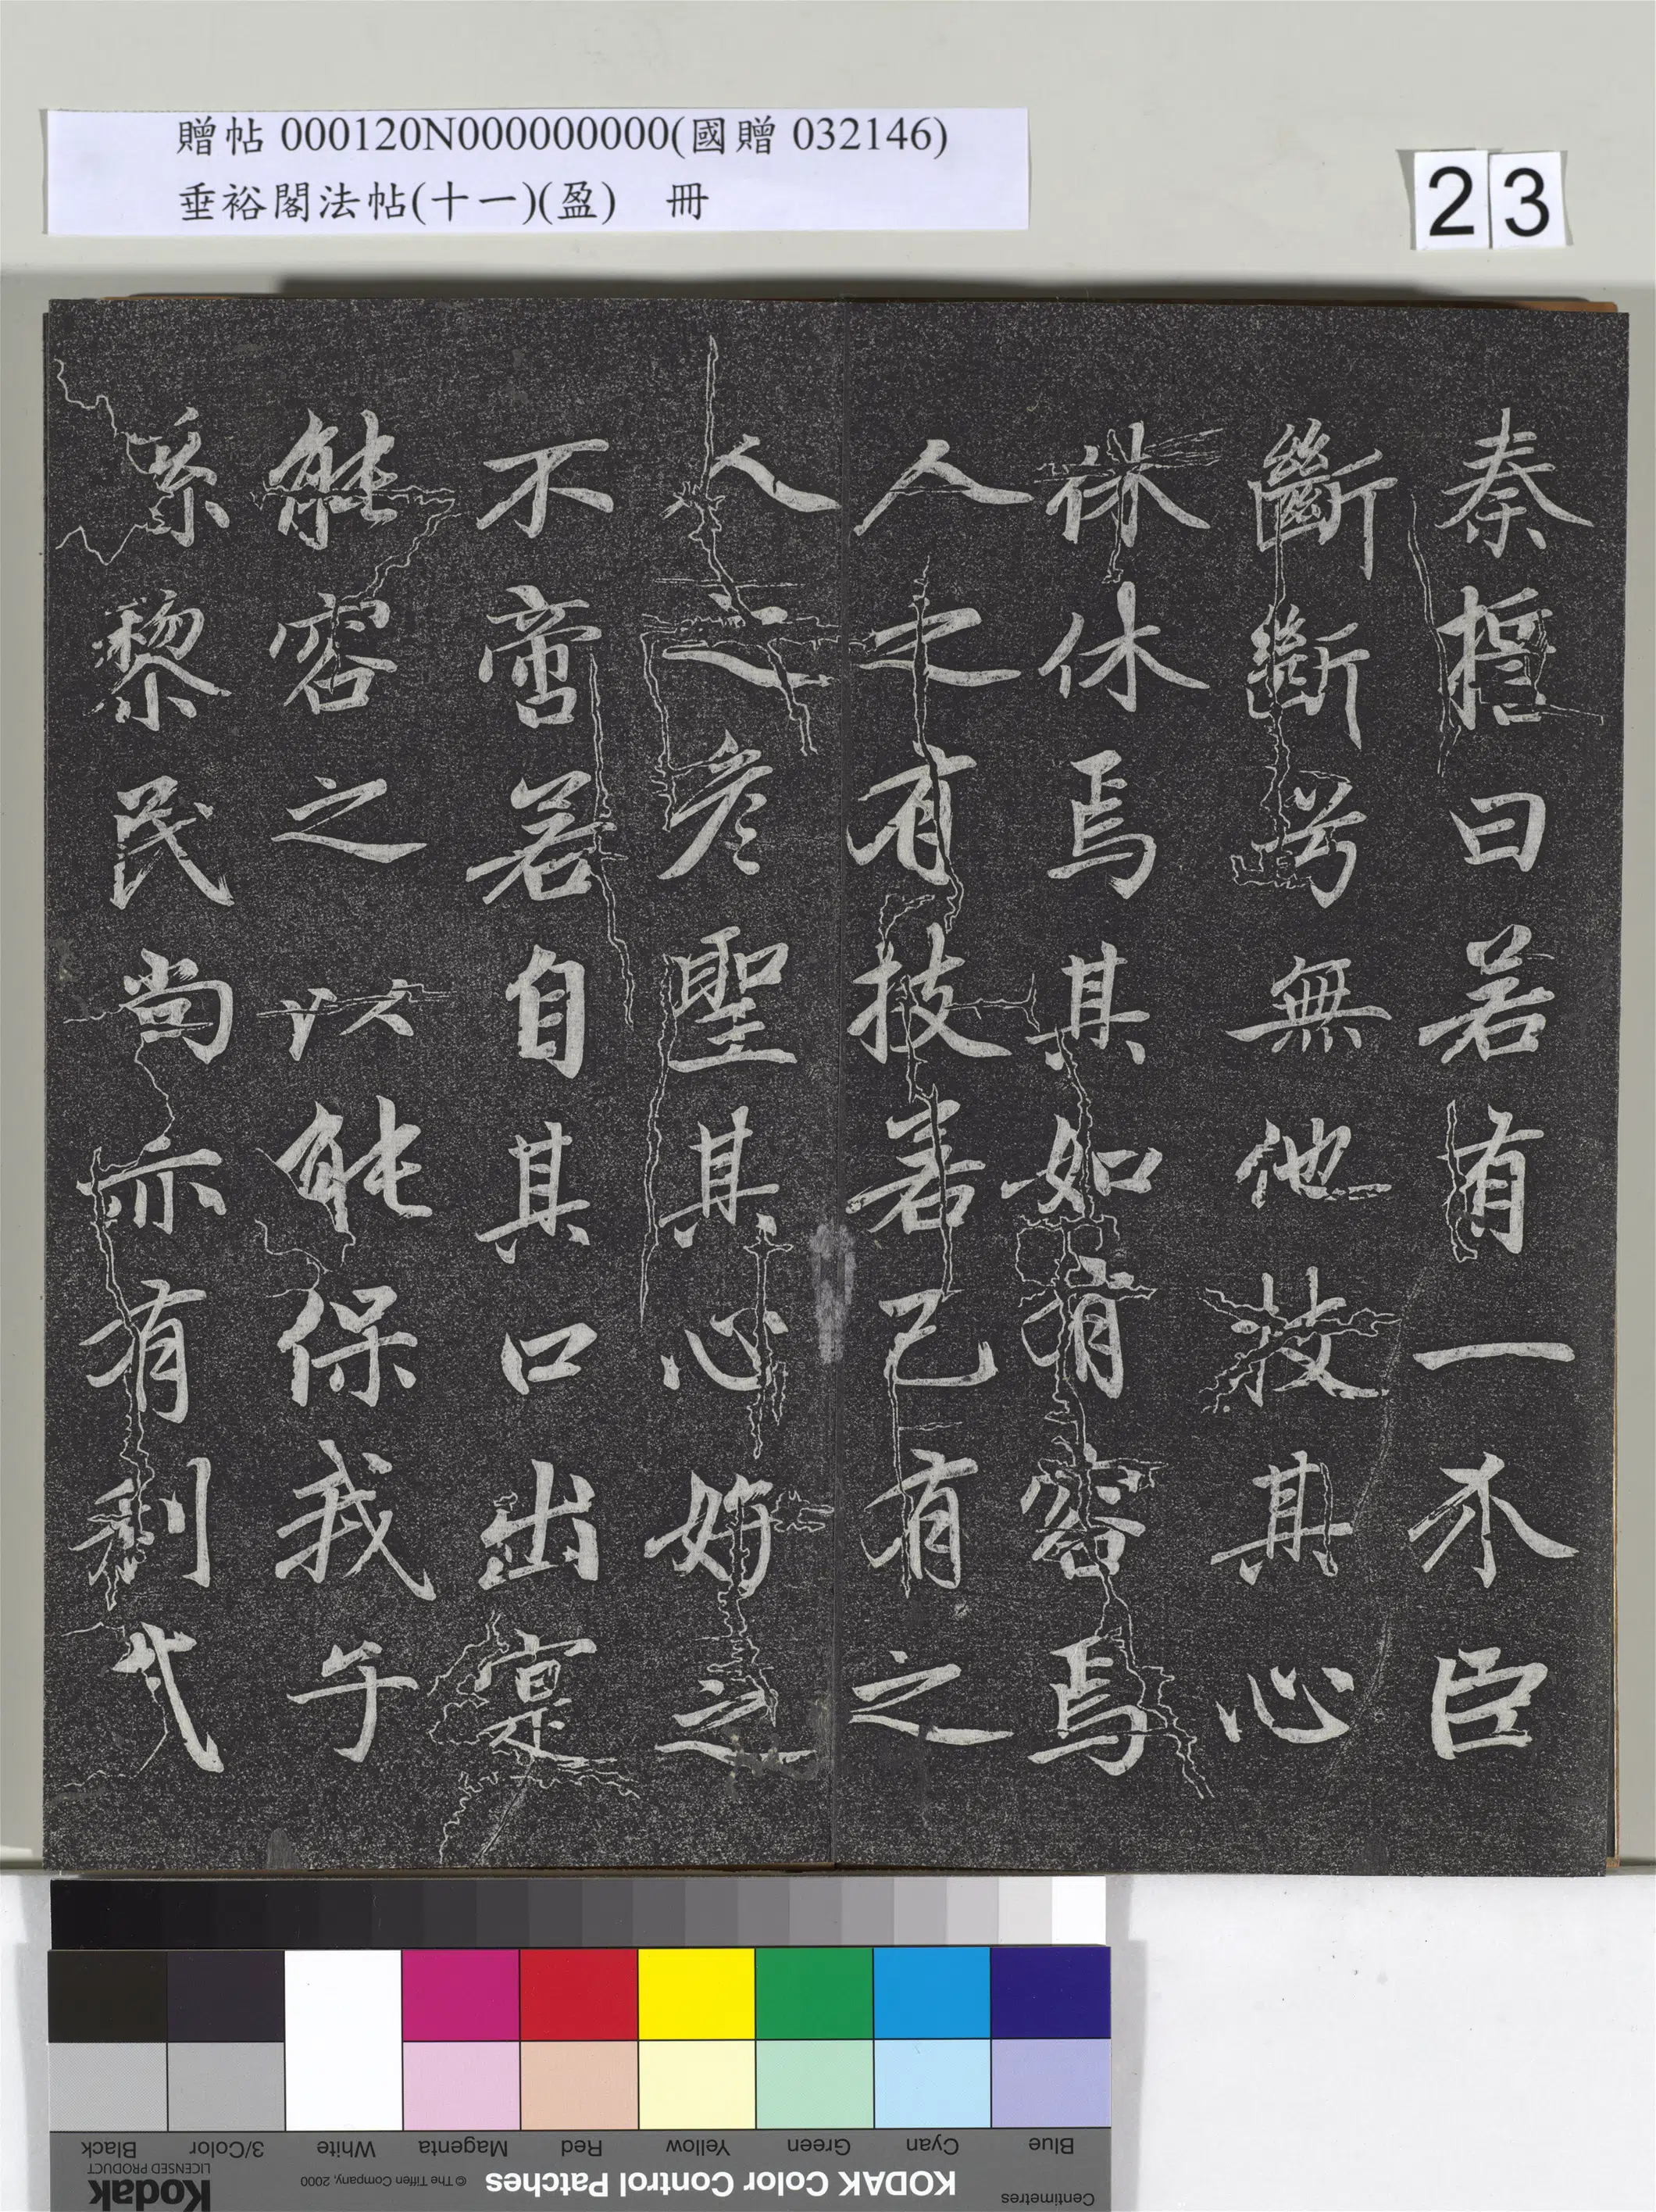 贈帖 000120N000000000(國贈 032146)
垂裕閣法帖(十一)(盈) 冊
23
秦誓曰若有一个臣
斷斷兮無他技其心
休休焉其如有容焉
人之有技若己有之
人之彥聖其心好之
不啻若自其口出寔
能容之以能保我子
孫黎民尚亦有利哉
Blue
Cyan
Green
Yellow
Red
Magenta
White
3/Color
Black
Centimetres
KODAK Color Control Patches
© The Tiffen Company, 2000
Kodak
LICENSED PRODUCT